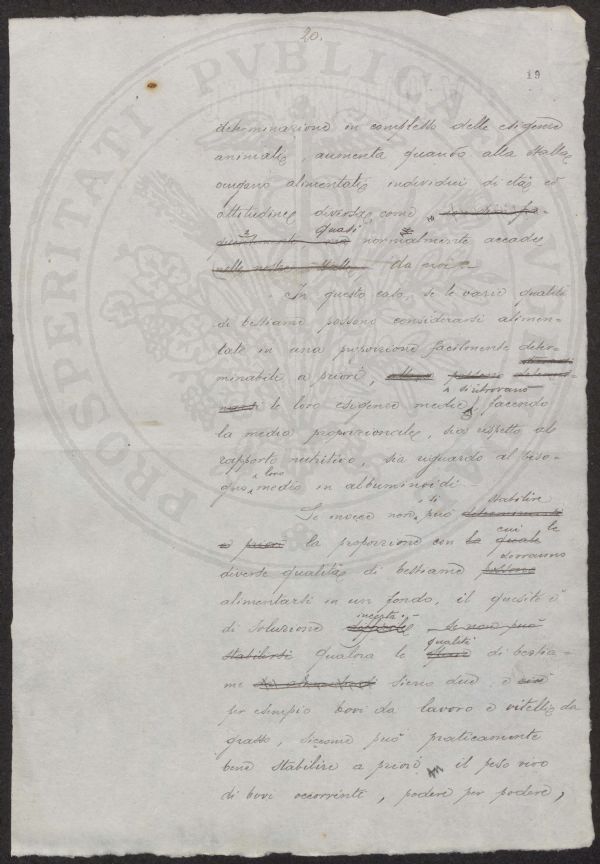 20.
19
PROSPERITATI PVBLICAE
determinazione in complesso delle esigenze
animali, aumenta quando alla stalla
vengono alimentati individui di età ed
attitudine diverse come
quasi
normalmente accade
nelle nostre stalle, da noi.
In questo caso, se le varie qualità
di bestiame possono considerarsi alimen-
tate in una proporzione facilmente deter-
minabile a priori, possono
si ritrovano
le loro esigenze medie, facendo
la media proporzionale, sia rispetto al
rapporto nutritivo, sia riguardo al biso-
loro
gno medio in albuminoidi.
si stabilire
Se invece non può determinarsi
cui le
a priori la proporzione con la quale
dovranno
diverse qualità di bestiame possono
alimentarsi in un fondo, il quesito è
incerta:
di soluzione difficile, se non può
qualità
stabilirsi qualora le di bestia-
me sieno due e cioè
per esempio bovi da lavoro e vitelli da
grasso, siccome può praticamente
bene stabilire a priori il peso vivo
di bovi occorrente, podere per podere,